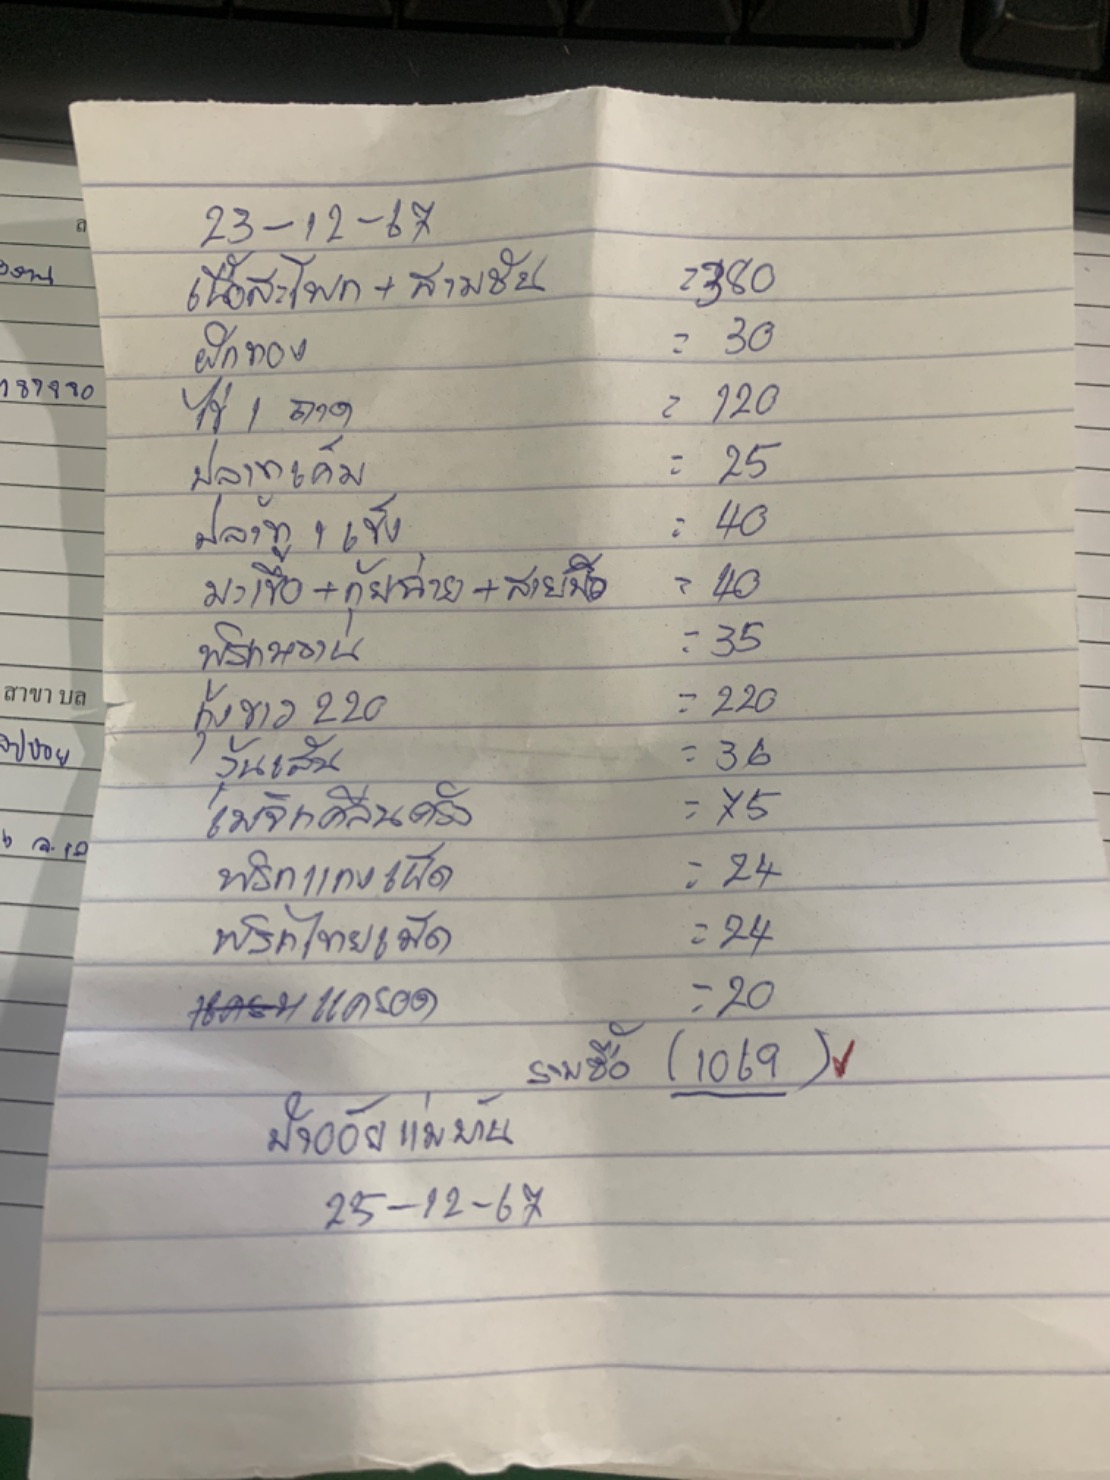 23-12-67
เนื้อสะโพก + สามชั้น = 380
ฝักทอง = 30
ไข่ 1 ถาด = 120
ปลาทูเค็ม = 25
ปลาทู 1 เข่ง = 40
มะเขือ + กุ้ยฉ่าย + สายบัว = 40
พริกหวาน = 35
กุ้งขาว 220 = 220
วุ้นเส้น = 36
เมจิกคลีนครัว = 75
พริกแกงเผ็ด = 24
พริกไทยเม็ด = 24
แครอด = 20
รวมซื้อ (1069)
ป้าอ้อย แม่บ้าน
25-12-67
187980
สาขา บล